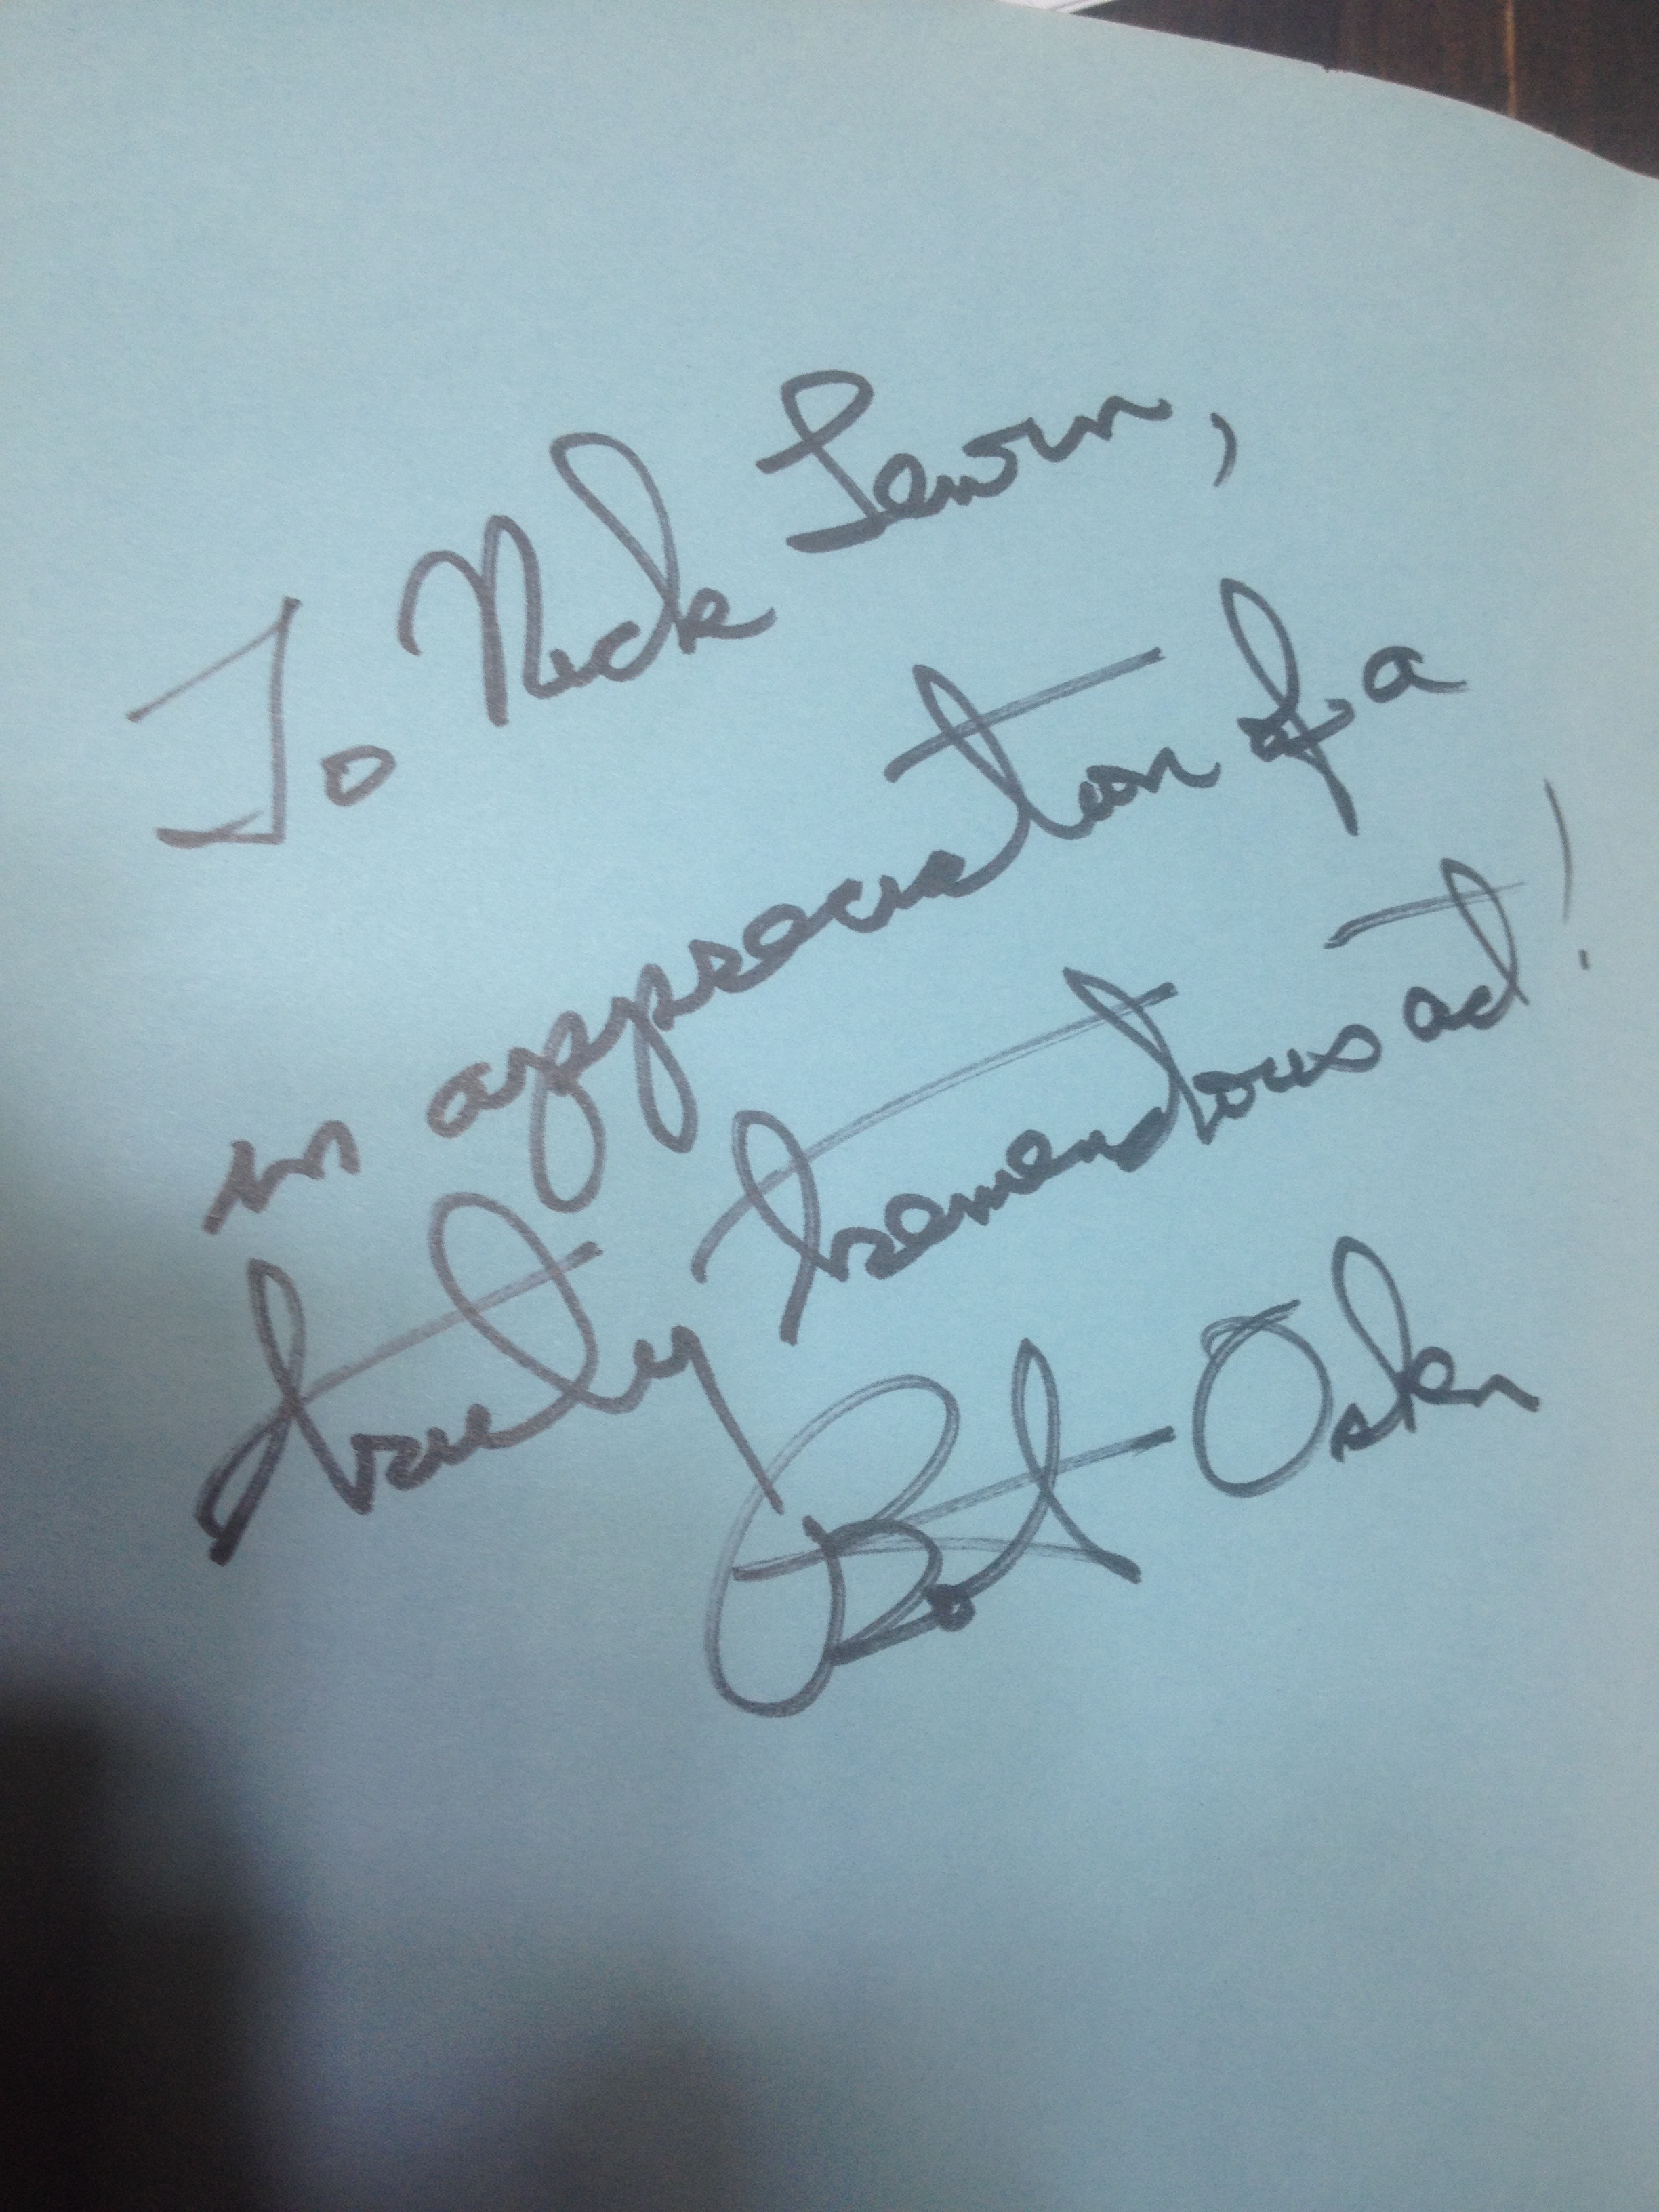 To Nick Lewin,
in appreciation of a
truly tremendous act!
Bob Osten